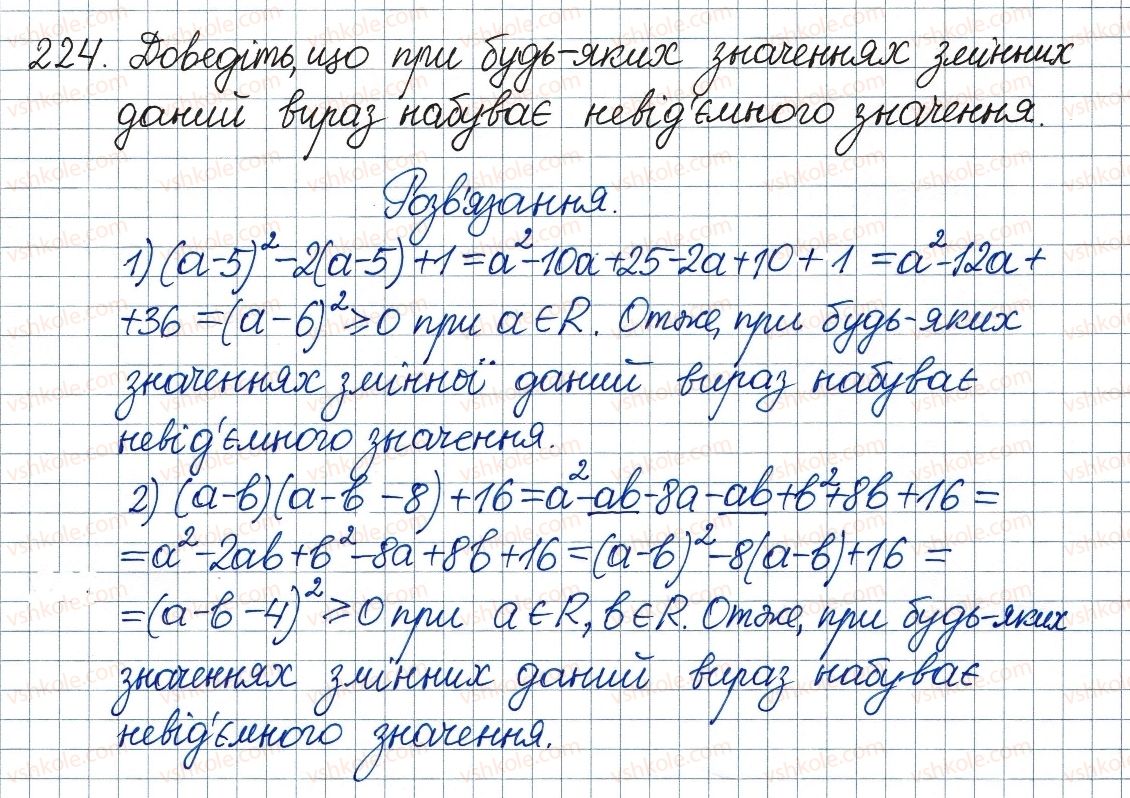 224. Доведіть, що при будь-яких значеннях змінних
даний вираз набуває невід'ємного значення.
Розв'язання.
1) (a-5)²-2(a-5)+1=a²-10a+25-2a+10+1=a²-12a+
+36=(a-6)²≥0 при a∈R. Отже, при будь-яких
значеннях змінної даний вираз набуває
невід'ємного значення.
2) (a-b)(a-b-8)+16=a²-ab-8a-ab+b²+8b+16=
=a²-2ab+b²-8a+8b+16=(a-b)²-8(a-b)+16=
=(a-b-4)²≥0 при a∈R, b∈R. Отже, при будь-яких
значеннях змінних даний вираз набуває
невід'ємного значення.